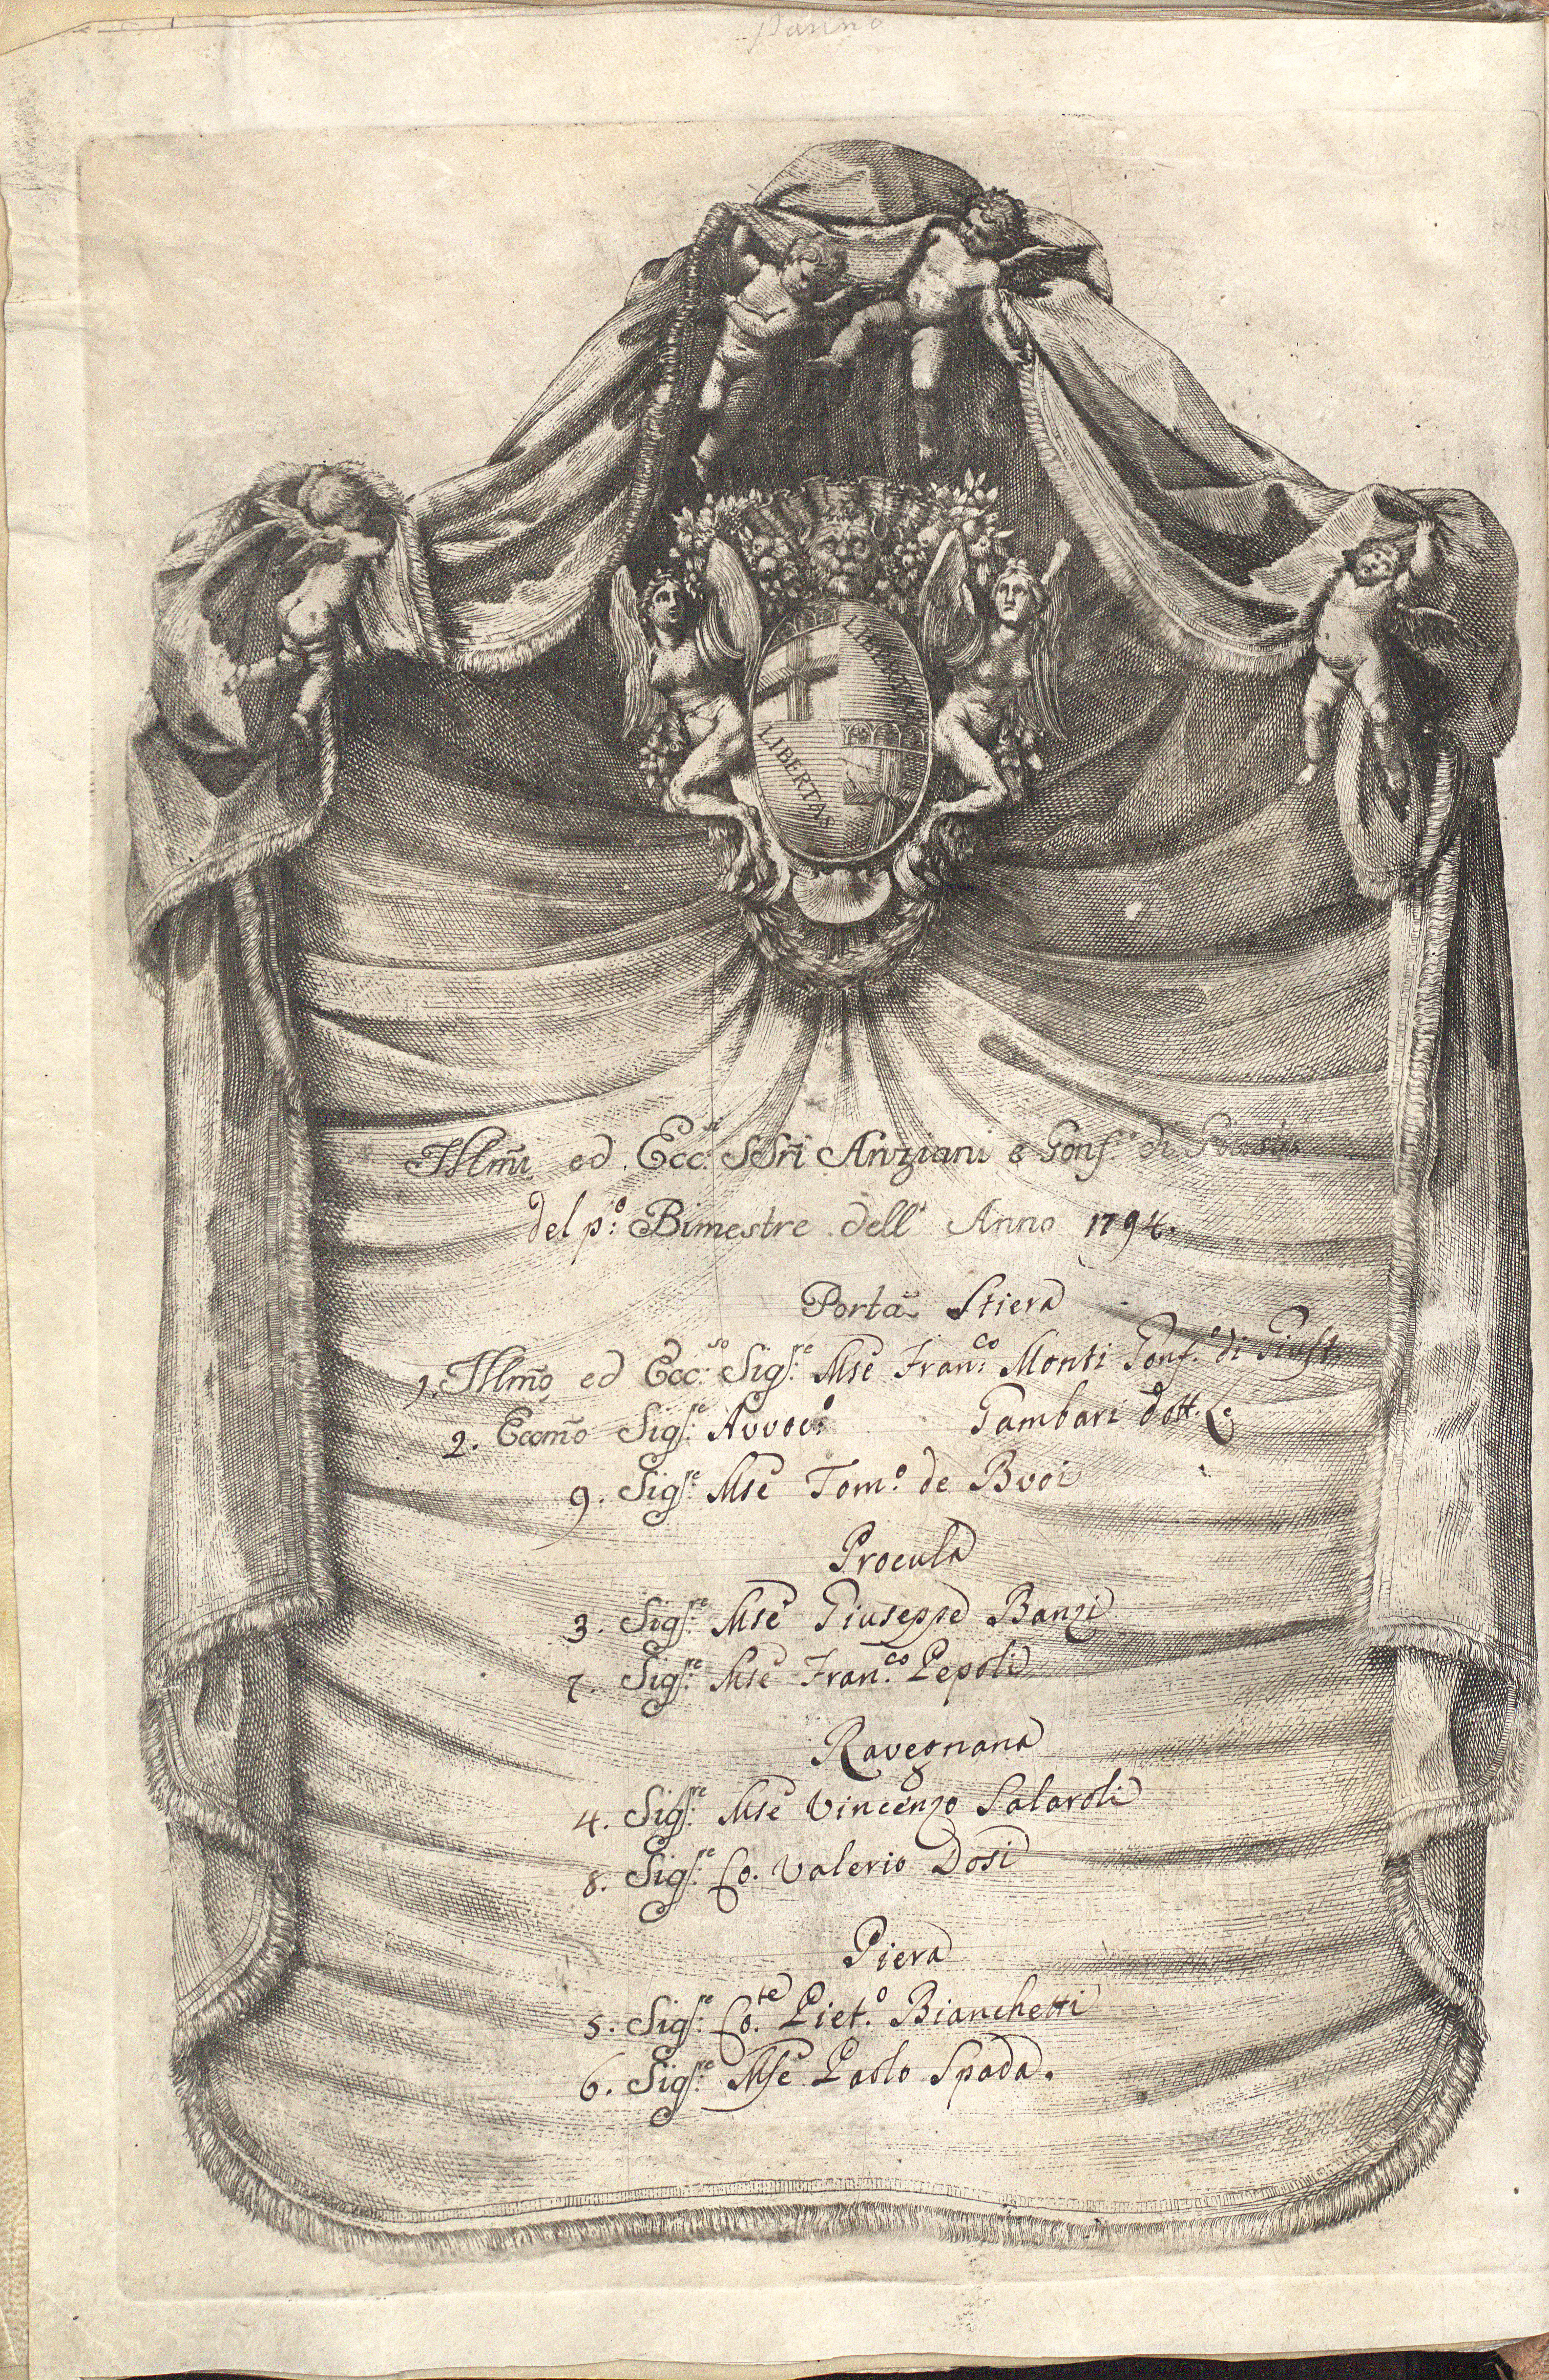 Panno
LIBERTAS
LIBERTAS
Illmi ed Ecc.si SSri Anziani e Gonf.e di
del p.o Bimestre dell' Anno 1794.
Porta Stiera
1. Illmo ed Ecc.so Sig.re Mse Fran.co Monti Gonf.e di Giust.
2. Eccmo Sig.re Avvoc.o Gambari dott. Le
9. Sig.re Mse Tom.o de Bvoi
Procula
3. Sig.re Mse Giuseppe Banzi
7. Sig.re Mse Fran.co Pepoli
Ravegnana
4. Sig.re Mse Vincenzo Salaroli
8. Sig.re Co. Valerio Dosi
Piera
5. Sig.re Co.te Piet.o Bianchetti
6. Sig.re Mse Paolo Spada.